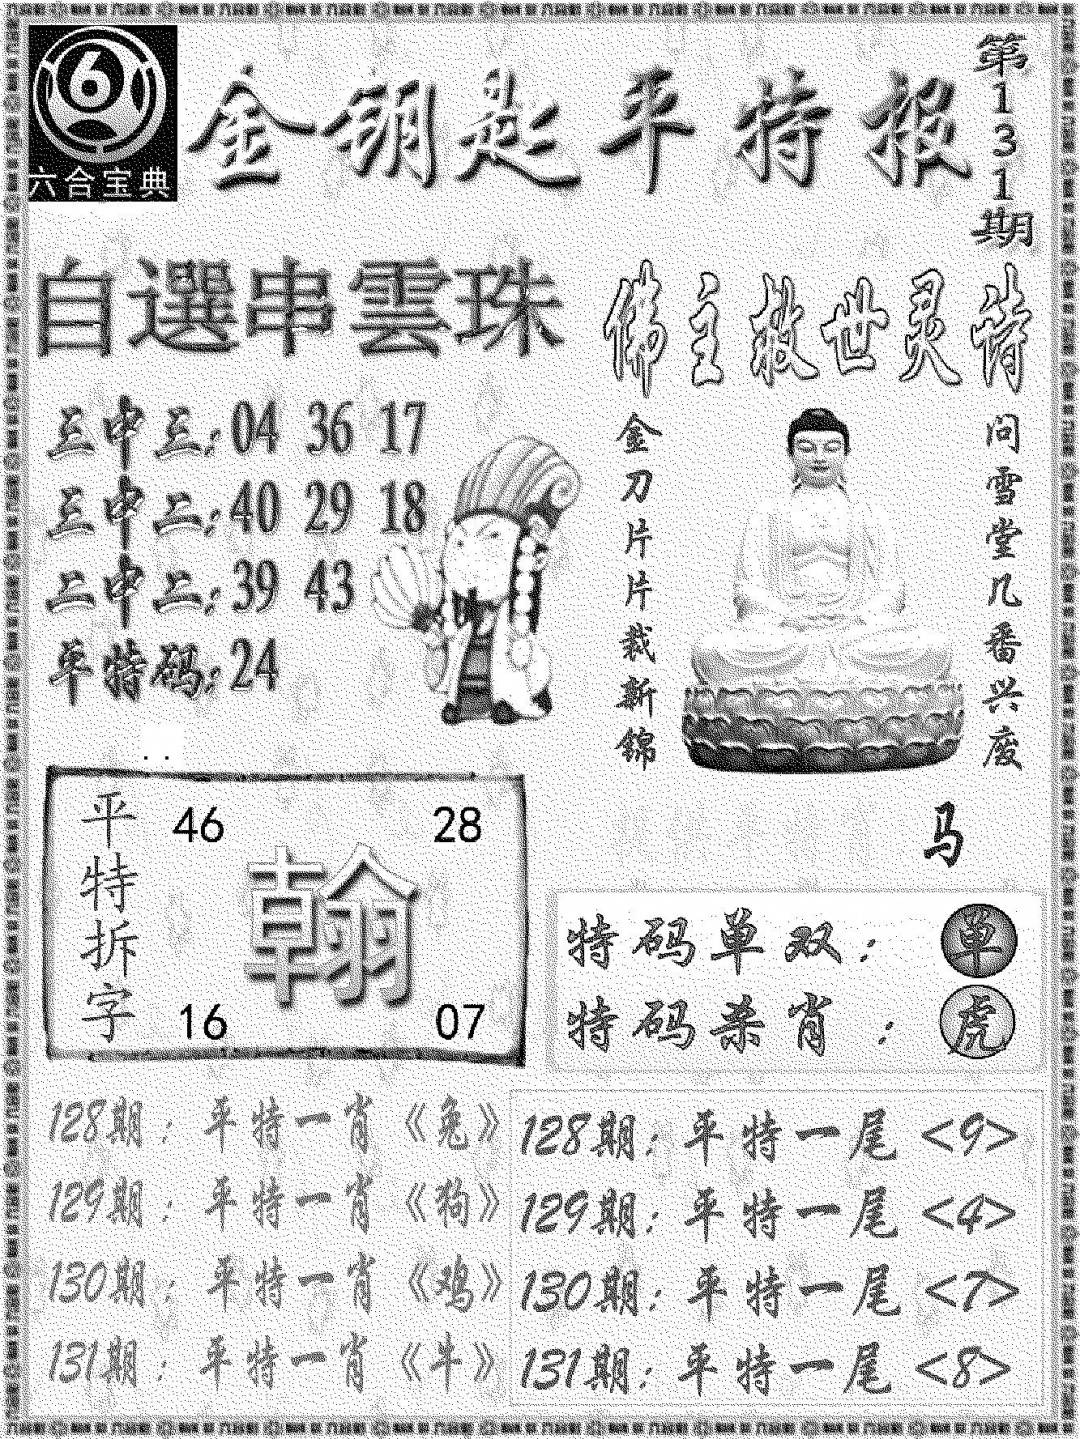 6
六合宝典
金钥匙平特报
第131期
自選串雲珠
三中三:04 36 17
三中二:40 29 18
二中二:39 43
单特码:24
佛主救世灵诗
问雪堂几番兴废
金刀片片裁新錦
马
平特拆字
46 28
翰
16 07
特码单双: 单
特码杀肖: 虎
128期: 平特一肖《兔》
129期: 平特一肖《狗》
130期: 平特一肖《鸡》
131期: 平特一肖《牛》
128期: 平特一尾 <9>
129期: 平特一尾 <4>
130期: 平特一尾 <7>
131期: 平特一尾 <8>